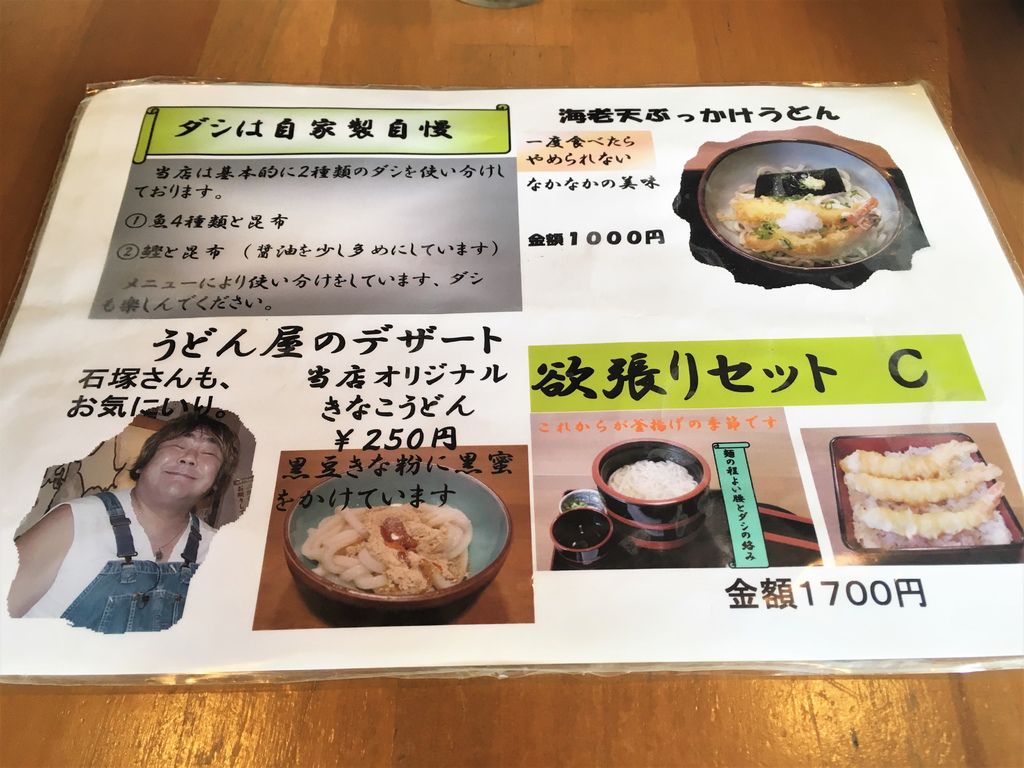 ダシは自家製自慢
当店は基本的に2種類のダシを使い分けし
ております。
①魚4種類と昆布
②鰹と昆布 (醤油を少し多めにしています)
メニューにより使い分けをしています、ダシ
も楽しんでください。
海老天ぶっかけうどん
一度食べたら
やめられない
なかなかの美味
金額1000円
うどん屋のデザート
石塚さんも、
お気にいり。
当店オリジナル
きなこうどん
¥250円
黒豆きな粉に黒蜜
をかけています
欲張りセット C
これからが釜揚げの季節です
麺の程よい腰とダシの絡み
金額1700円